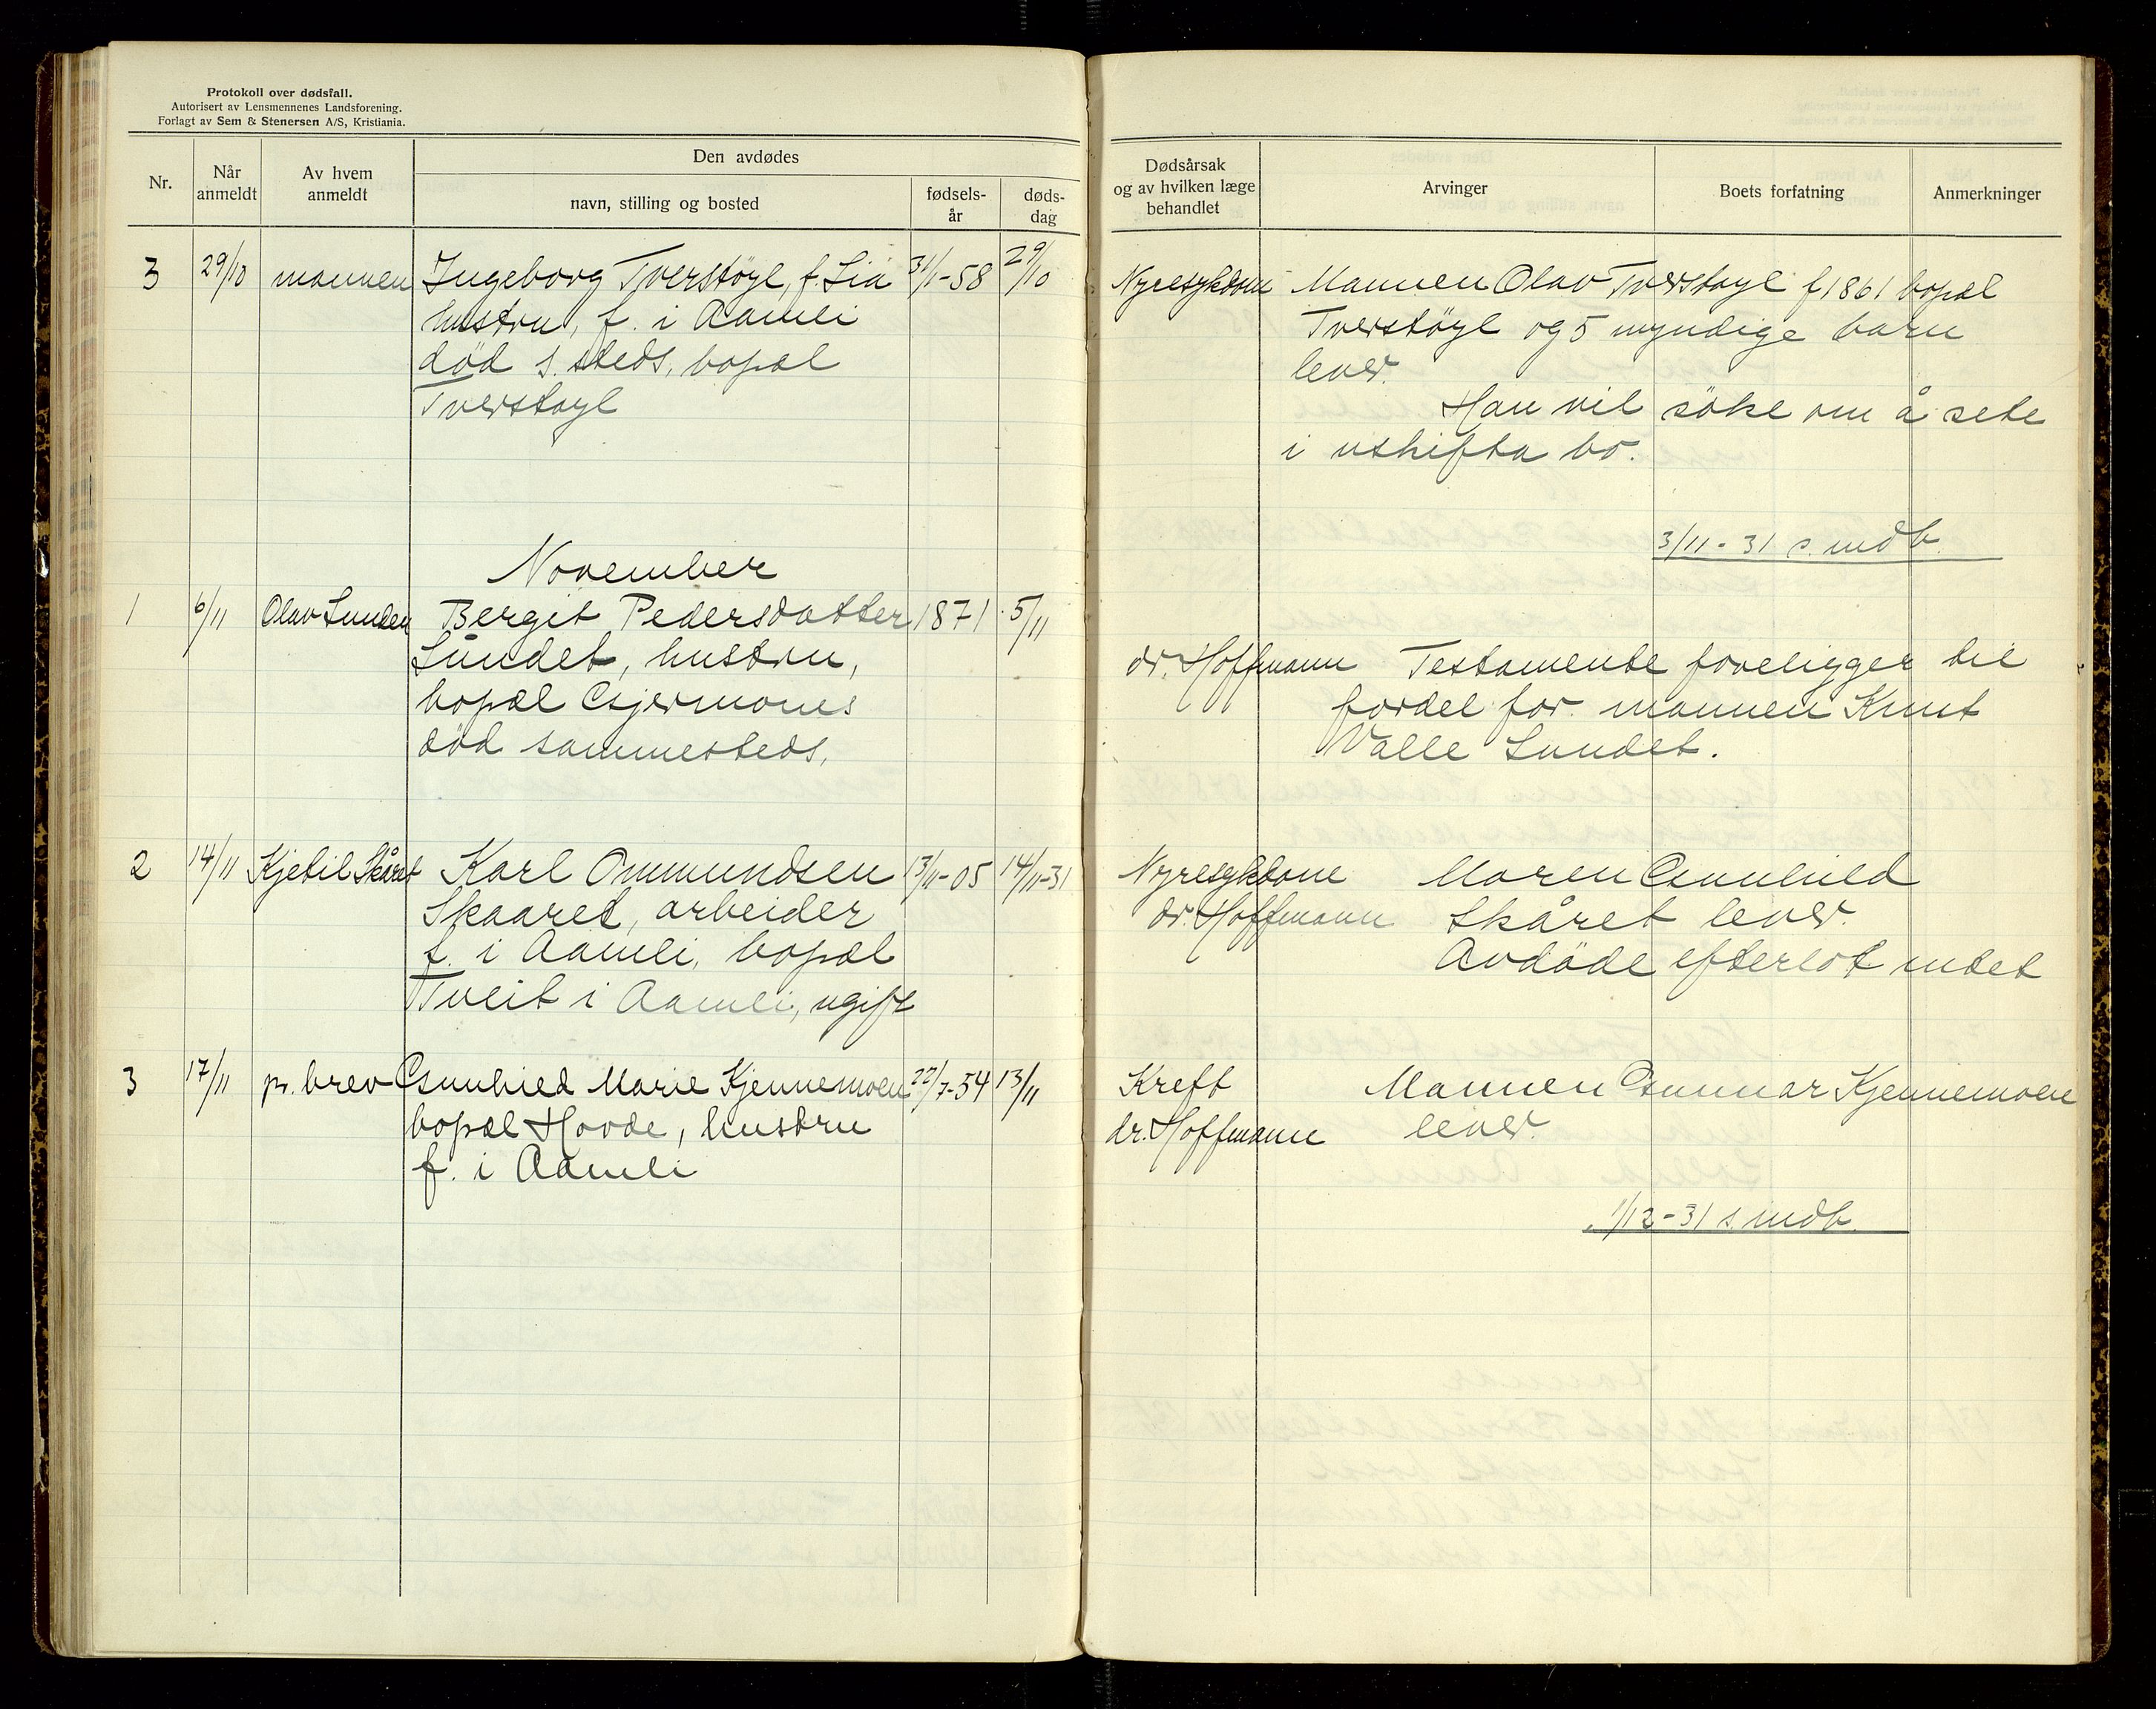 Protokoll over dødsfall.
Autorisert av Lensmennenes Landsforening.
Forlagt av Sem & Stenersen A/S, Kristiania.
Nr.
Når anmeldt
Av hvem anmeldt
Den avdødes
navn, stilling og bosted
fødsels-år
døds-dag
Dødsårsak
og av hvilken læge
behandlet
Arvinger
Boets forfatning
Anmerkninger
3 29/10 mannen Ingeborg Tverstöyl, f. Lia 31/1-58 29/10
hustru, f. i Aamli
död s. steds, bopæl
Tverstöyl
Nyresykdom Mannen Olav Tverstöyl f 1861 bopæl
Tverstöyl og 5 myndige barn
lever.
Han vil söke om å sete
i uskifta bo.
3/11-31 s. mdb.
November
1 6/11 Olav Lunden Bergit Pedersdatter 1871 5/11
Lundet, hustru,
bopæl Gjermones
död sammesteds.
dr. Hoffmann Testamente foreligger til
fordel for mannen Knut
Valle Lundet.
2 14/11 Kjetil Skåret Karl Ommundsen 13/11-05 14/11-31
Skaaret, arbeider
f. i Aamli, bopæl
Tveit i Aamli, ugift
Nyresykdom Moren Gunhild
dr. Hoffmann Skåret lever.
Avdöde efterlot intet
3 17/11 pr. brev Gunhild Marie Kjennemoen 22/7-54 13/11
bopæl Hovde, hustru
f. i Aamli
Kreft Mannen Gunnar Kjennemoen
dr. Hoffmann lever.
1/12-31 s. mdb.